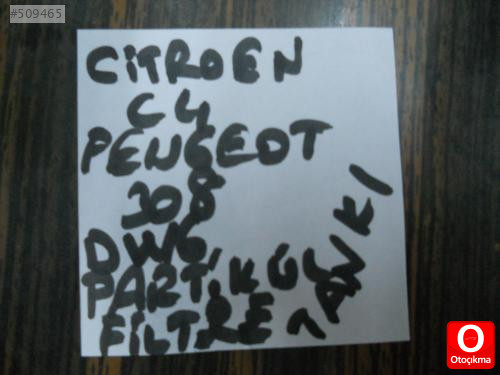 #509465
CİTROEN
C4
PENGEOT
308
DW6
PARTİKÜL
FİLTRE TANKI
Otoçıkma